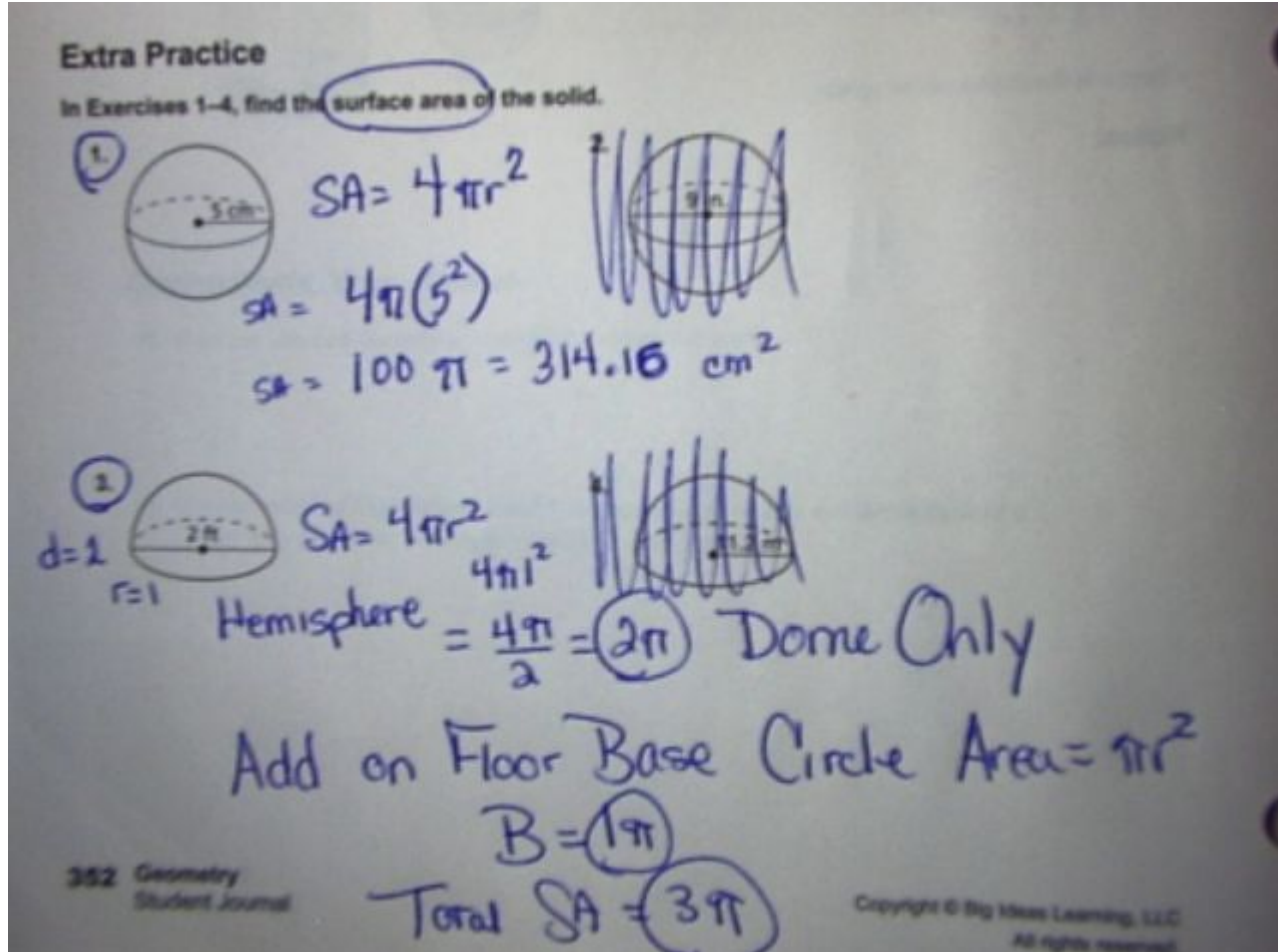 Extra Practice
In Exercises 1–4, find the surface area of the solid.
1.
5 cm
SA= 4πr²
SA = 4π(5²)
SA = 100 π = 314.16 cm²
2.
9 in.
3.
2 ft
d=2
r=1
SA= 4πr²
4π1²
Hemisphere = 4π/2 = 2π Dome Only
Add on Floor Base Circle Area= πr²
B = 1π
Total SA = 3π
352 Geometry
Student Journal
Copyright © Big Ideas Learning, LLC
All rights reserved.